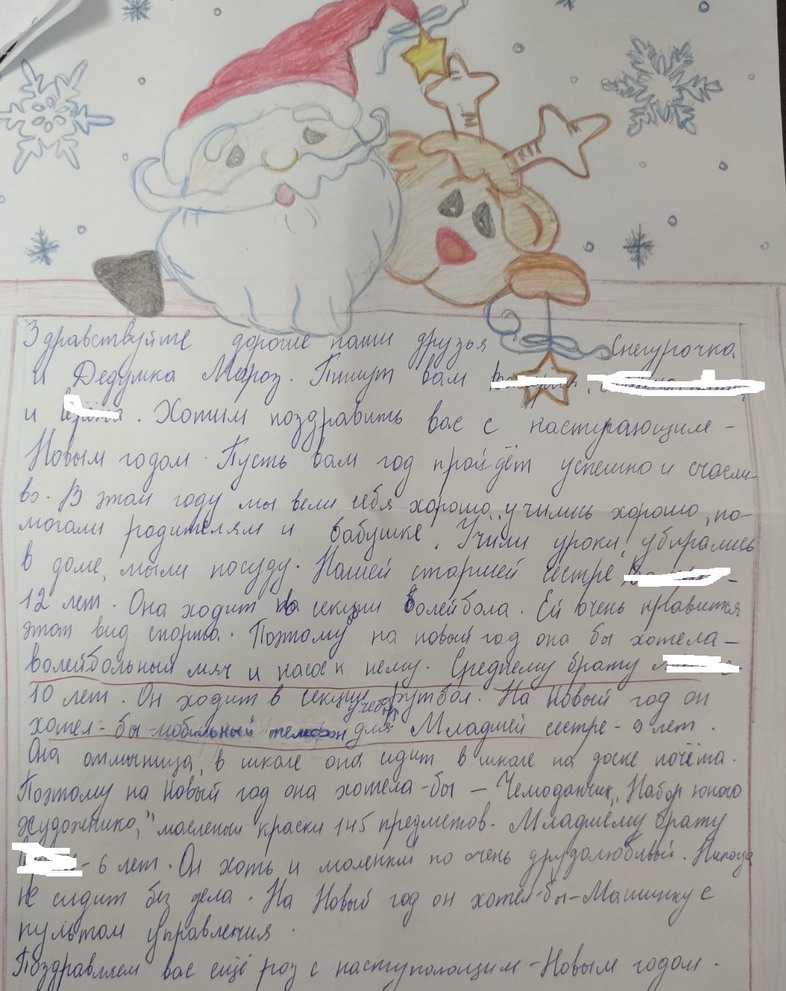 Здравствуйте дорогие наши друзья Снегурочка
и Дедушка Мороз. Пишут вам
и . Хотим поздравить вас с наступающим-
Новым годом. Пусть вам год пройдёт успешно и счасли-
во. В этом году мы вели себя хорошо, учились хорошо, по-
могали родителям и бабушке. Учили уроки, убирались
в доме, мыли посуду. Нашей старшей сестре -
12 лет. Она ходит на секции волейбола. Ей очень нравится
этот вид спорта. Поэтому на новый год она бы хотела-
волейбольный мяч и насос к нему. Среднему брату
10 лет. Он ходит в секцию футбол. На Новый год он
хотел-бы мобильный телефон для учебы Младшей сестре-9 лет.
Она отличница, в школе она сидит в школе на доске почёта.
Поэтому на Новый год она хотела-бы - Чемоданчик, "Набор юного
художника," масленый краски 145 предметов. Младшему брату
- 6 лет. Он хоть и маленкий но очень друдолюбивый. Никогда
не сидит без дела. На Новый год он хотел-бы-Машинку с
пультом управления.
Поздравляем вас ещё роз с наступающим-Новым годом.